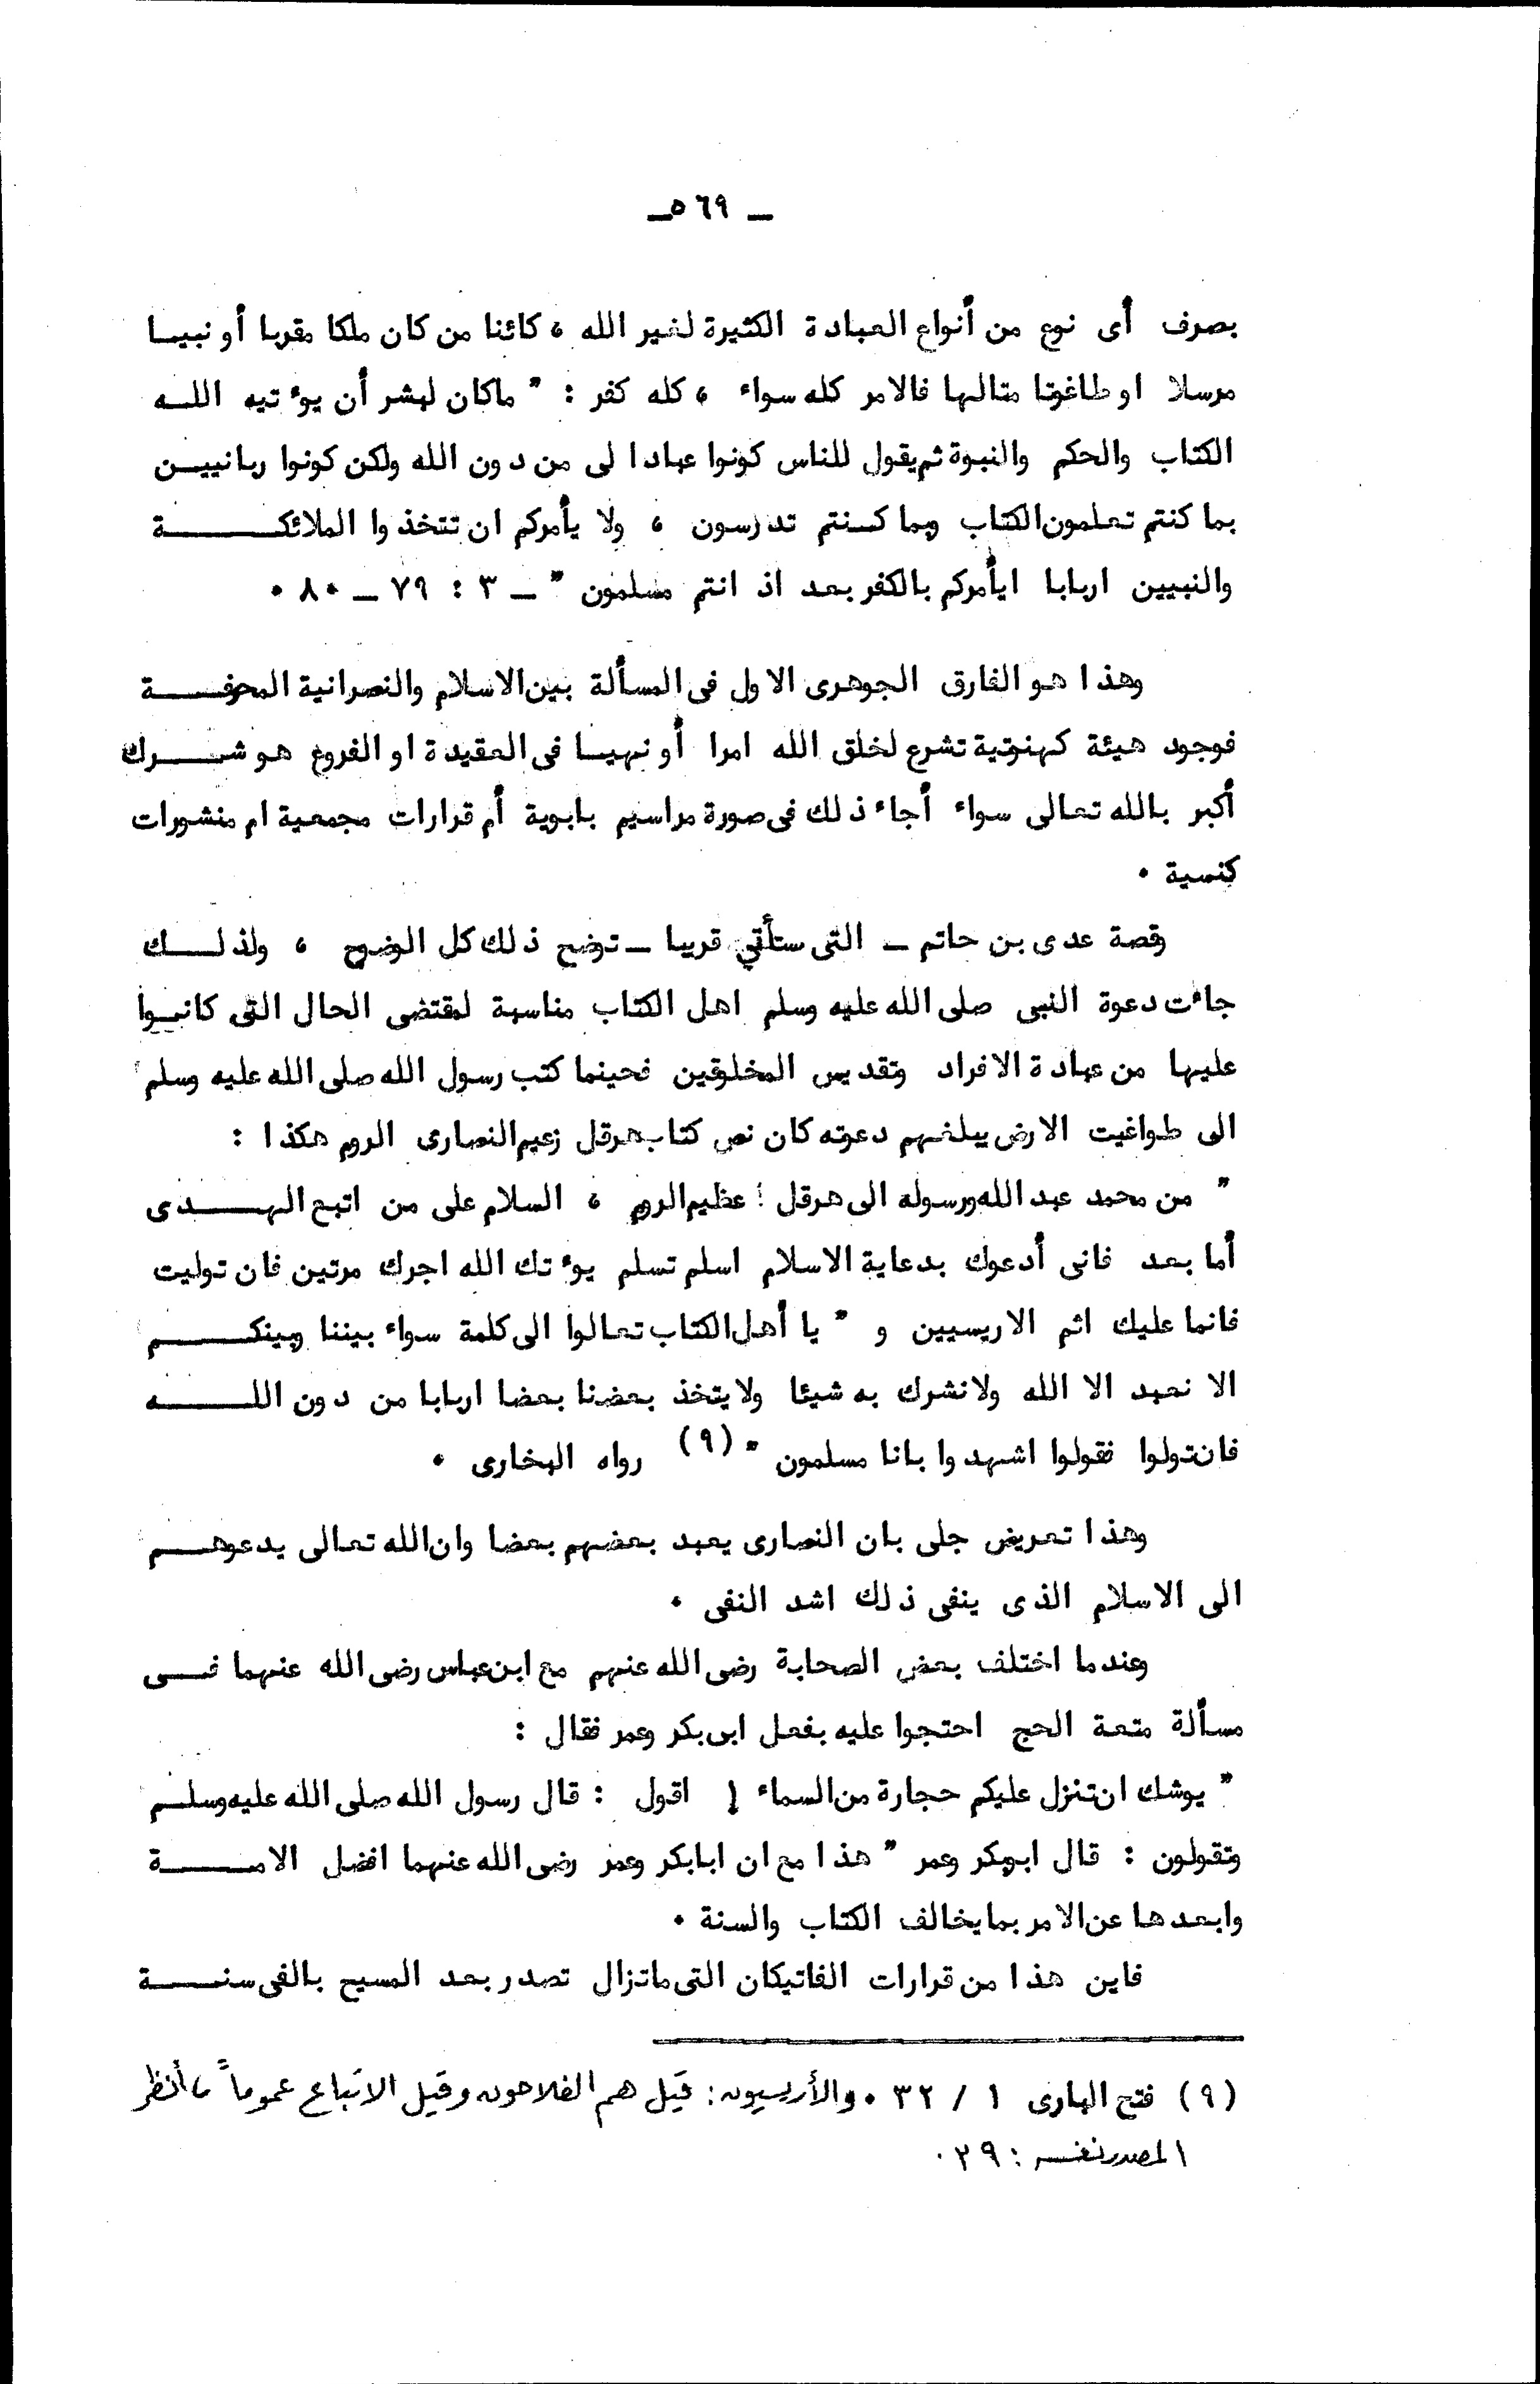 ـ ٥٦٩ ـ
بصرف أى نوع من أنواع العبادة الكثيرة لغير الله ، كائنا من كان ملكا مقربا أو نبيـا
مرسلا او طاغوتا متالها فالامر كله سواء ، كله كفر : " ماكان لبشر أن يوءتيه اللـه
الكتاب والحكم والنبوة ثم يقول للناس كونوا عبادا لى من دون الله ولكن كونوا ربانييـن
بما كنتم تعلمون الكتاب وبما كـنتم تدرسون ، ولا يأمركم ان تتخذوا الملائكــــــة
والنبيين اربابا ايأمركم بالكفر بعد اذ انتم مسلمون " ـ ٣ : ٧٩ ـ ٨٠ ٠
وهذا هو الفارق الجوهرى الاول فى المسألة بين الاسلام والنصرانية المحرفــــة
فوجود هيئة كهنوتية تشرع لخلق الله امرا أو نهيـا فى العقيدة او الفروع هو شـــرك
أكبر بالله تعالى سواء أجاء ذلك فى صورة مراسيم بابوية أم قرارات مجمعية ام منشورات
كنسية ٠
وقصة عدى بن حاتم ـ التى ستأتي قريبا ـ توضح ذلك كل الوضوح ، ولذلــك
جاءت دعوة النبى صلى الله عليه وسلم اهل الكتاب مناسبة لمقتضى الحال التى كانـوا
عليها من عبادة الافراد وتقديس المخلوقين فحينما كتب رسول الله صلى الله عليه وسلم
الى طواغيت الارض يبلغهم دعوته كان نص كتاب هرقل زعيم النصارى الروم هكذا :
" من محمد عبد الله ورسوله الى هرقل ! عظيم الروم ، السلام على من اتبع الهـــدى
أما بعد فانى أدعوك بدعاية الاسلام اسلم تسلم يوءتك الله اجرك مرتين فان توليت
فانما عليك اثم الاريسيين و " يا أهل الكتاب تعالوا الى كلمة سواء بيننا وبينكــــم
الا نعبد الا الله ولا نشرك به شيئا ولا يتخذ بعضنا بعضا اربابا من دون اللــــه
فان تولوا فقولوا اشهدوا بانا مسلمون " (٩) رواه البخارى ٠
وهذا تعريض جلى بان النصارى يعبد بعضهم بعضا وان الله تعالى يدعوهــم
الى الاسلام الذى ينفى ذلك اشد النفى ٠
وعندما اختلف بعض الصحابة رضى الله عنهم مع ابن عباس رضى الله عنهما فــى
مسألة متعة الحج احتجوا عليه بفعل ابى بكر وعمر فقال :
" يوشك ان تنزل عليكم حجارة من السماء ! اقول : قال رسول الله صلى الله عليه وسلـم
وتقولون : قال ابوبكر وعمر " هذا مع ان ابابكر وعمر رضى الله عنهما افضل الامــــة
وابعدها عن الامر بما يخالف الكتاب والسنة ٠
فاين هذا من قرارات الفاتيكان التى ماتزال تصدر بعد المسيح بالفى سنـــة
(٩) فتح البارى ١ / ٣٢ ٠ والأريسيون : قيل هم الفلاحون وقيل الاتباع عموماً ، أنظر
المصدر نفسه : ٢٩ ٠